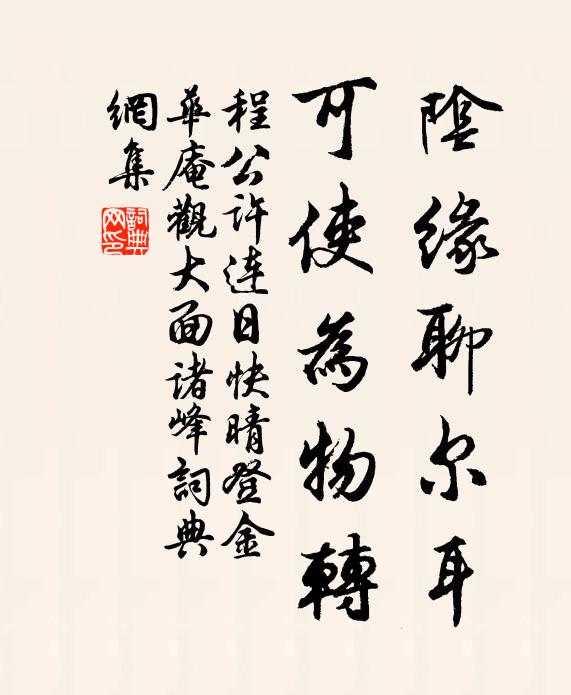 陰緣聊尔耳
可使為物轉
程公許連日快晴登金
華庵觀大面諸峰詞典
網集
詞典
网印